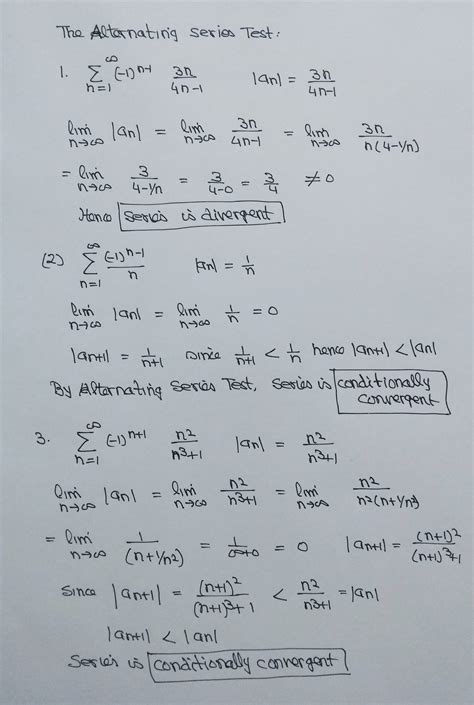 The Alternating Series Test:
1. ∞∑n=1 (-1)^{n-1} 3n/(4n-1) |an| = 3n/(4n-1)
lim n→∞ |an| = lim n→∞ 3n/(4n-1) = lim n→∞ 3n/(n(4-1/n))
= lim n→∞ 3/(4-1/n) = 3/(4-0) = 3/4 ≠ 0
Hence Series is divergent
(2) ∞∑n=1 (-1)^{n-1}/n |an| = 1/n
lim n→∞ |an| = lim n→∞ 1/n = 0
|an+1| = 1/(n+1) since 1/(n+1) < 1/n hence |an+1| < |an|
By Alternating Series Test, Series is conditionally
convergent
3. ∞∑n=1 (-1)^{n+1} n²/(n³+1) |an| = n²/(n³+1)
lim n→∞ |an| = lim n→∞ n²/(n³+1) = lim n→∞ n²/(n²(n+1/n²))
= lim n→∞ 1/(n+1/n²) = 1/(∞+0) = 0 |an+1| = (n+1)²/((n+1)³+1)
Since |an+1| = (n+1)²/((n+1)³+1) < n²/(n³+1) = |an|
|an+1| < |an|
Series is conditionally convergent